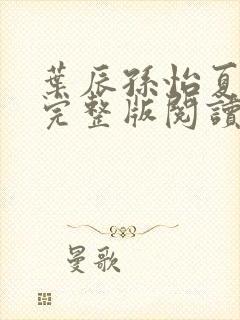 葉辰孫怡夏
完整版閱讀
曼歌